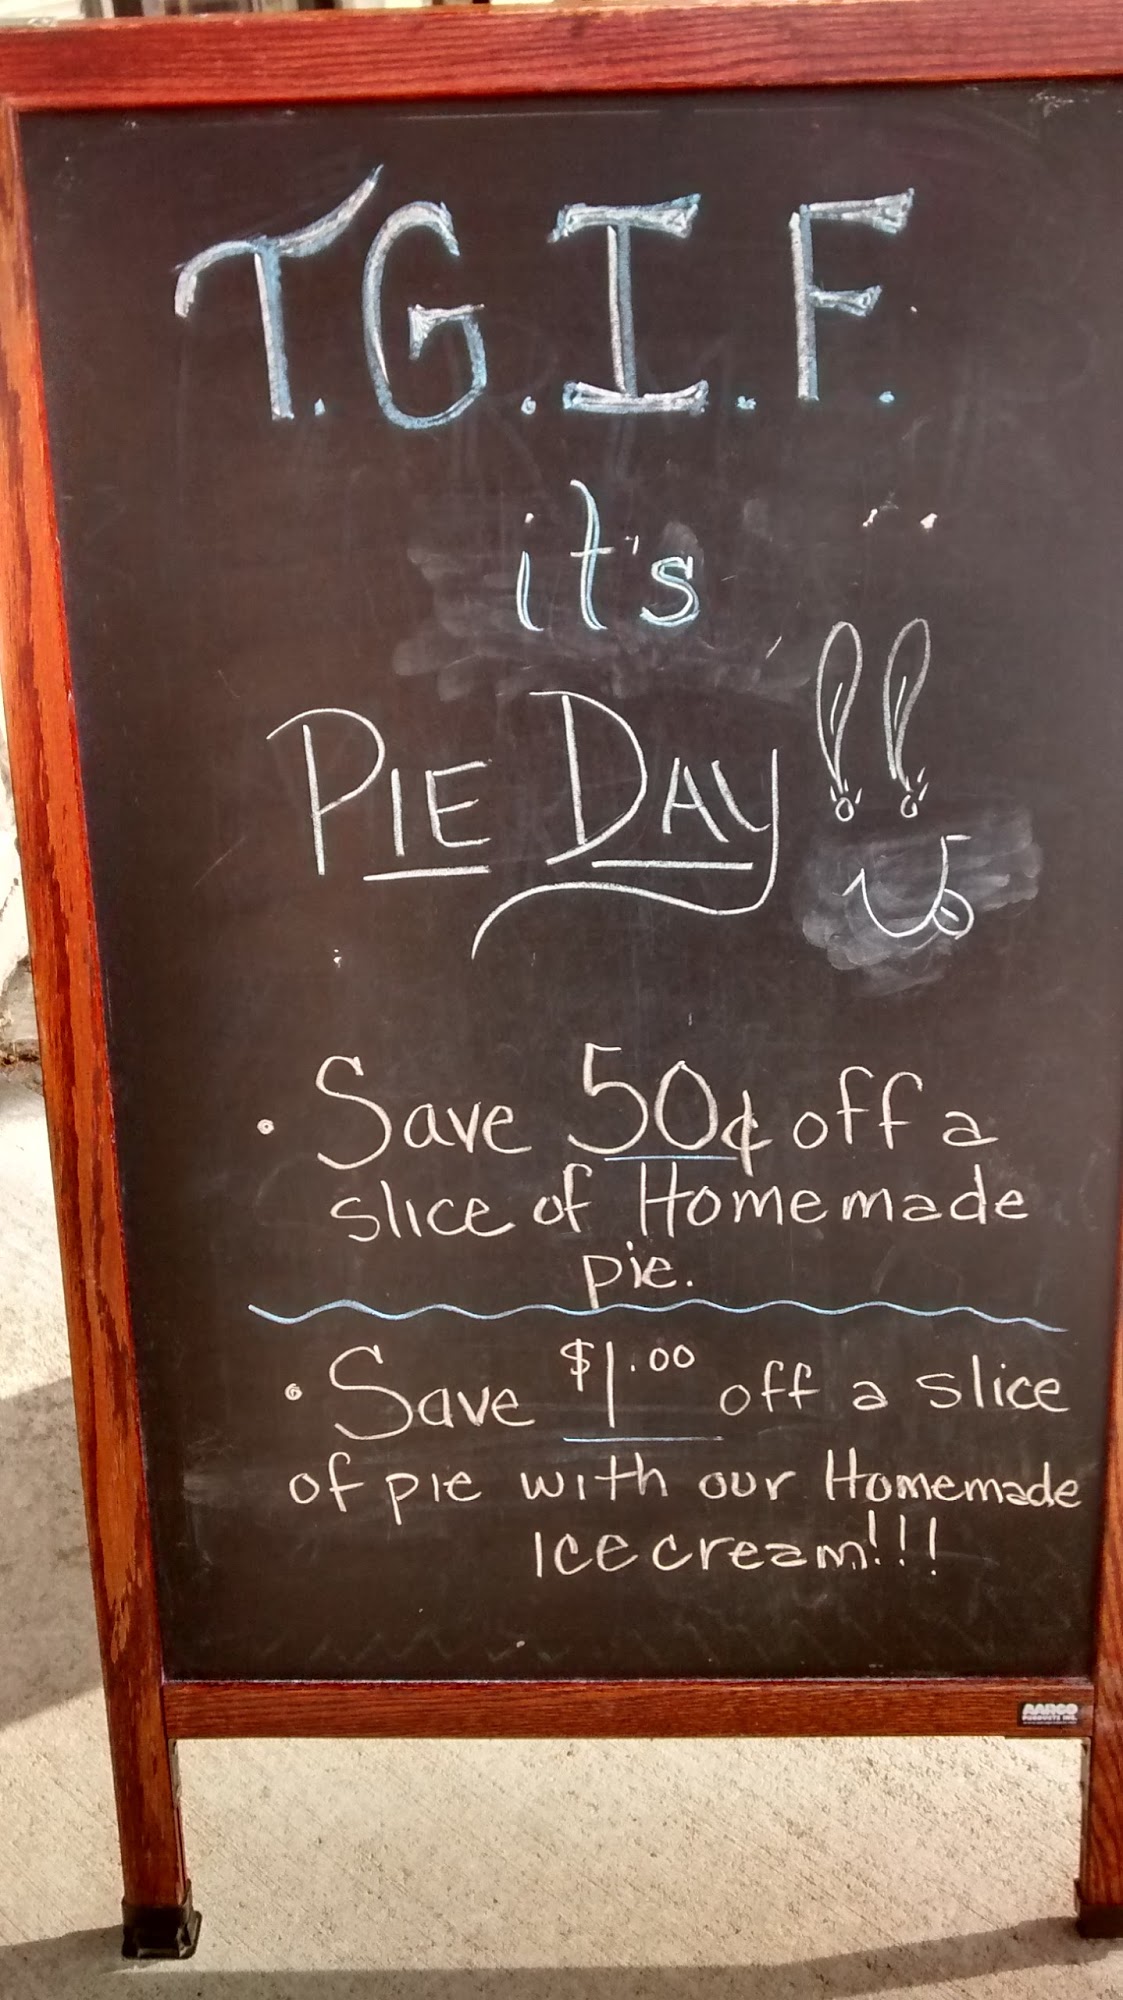 T.G.I.F.
it's
PIE DAY!!
• Save 50¢ off a
slice of Homemade
pie.
• Save $1.00 off a slice
of pie with our Homemade
Ice cream!!!
AARCO
PRODUCTS INC.